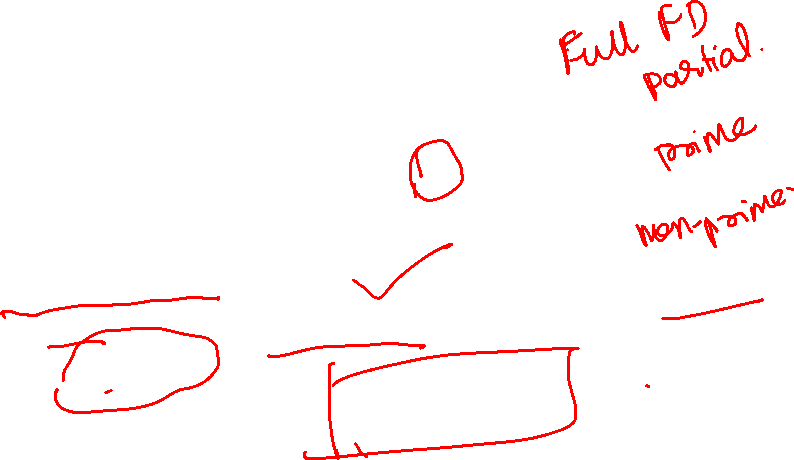 Full FD
partial.
prime
non-prime.